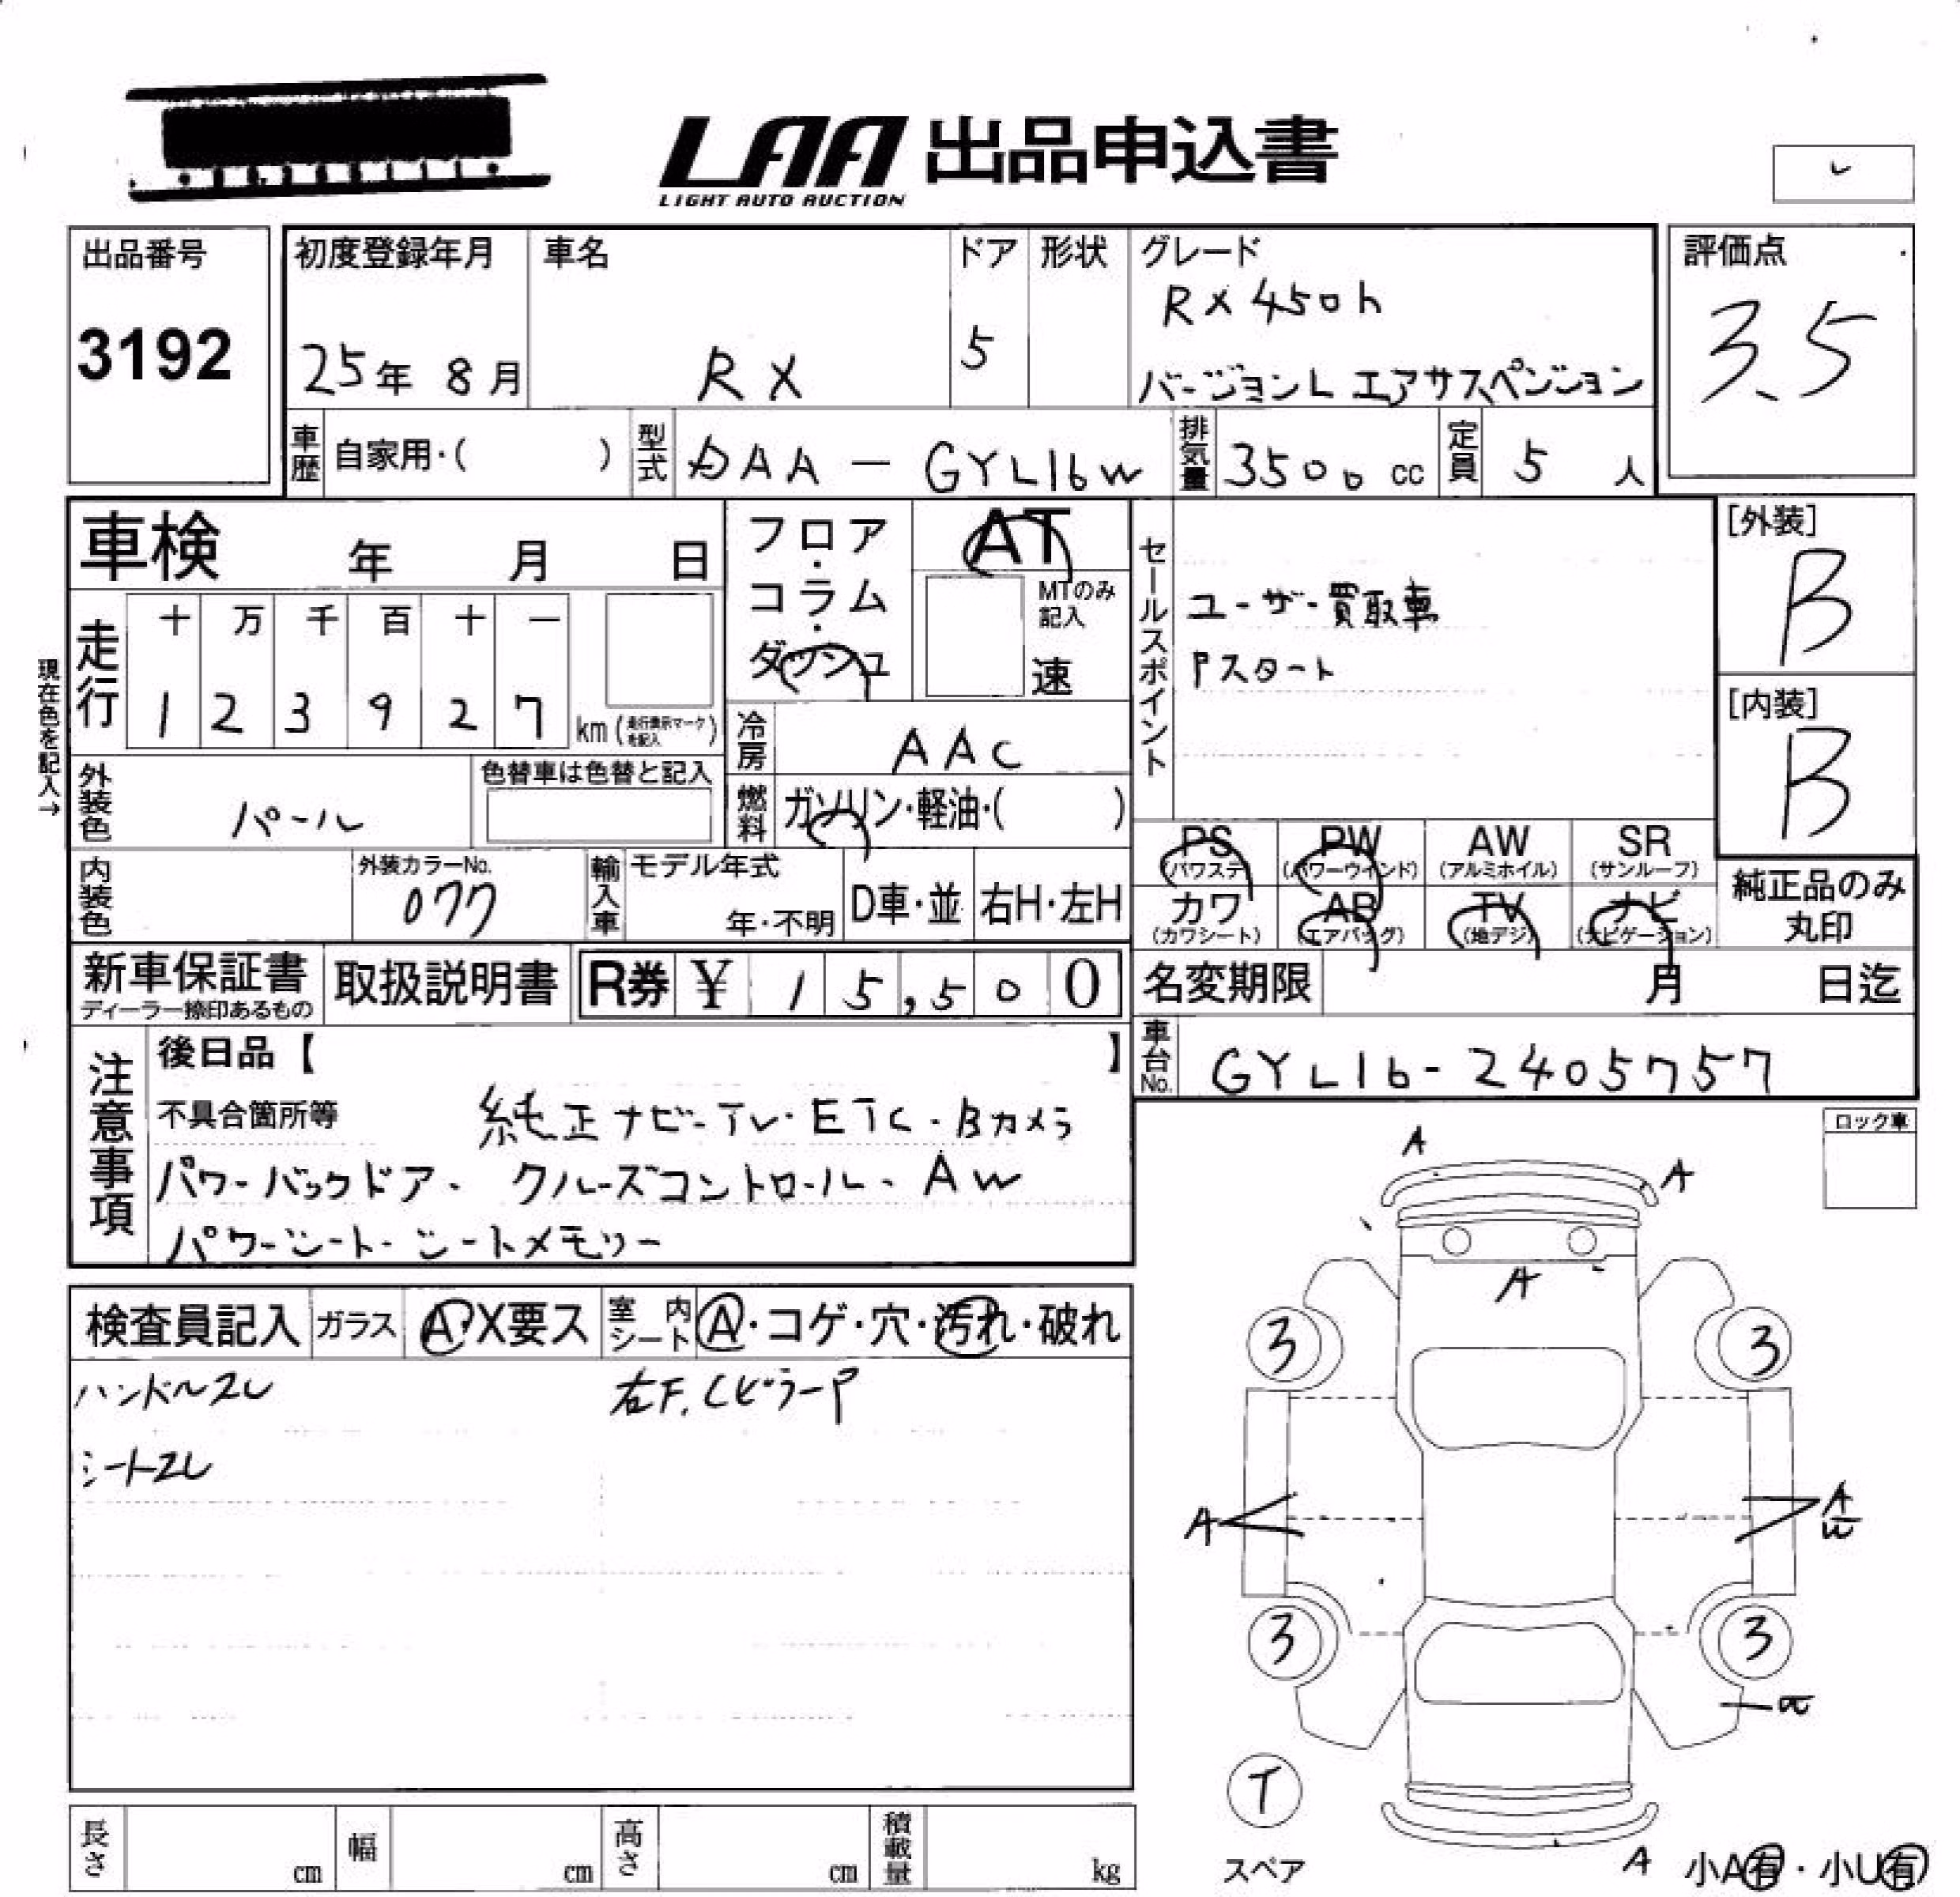 LAA 出品申込書
LIGHT AUTO AUCTION
出品番号
3192
初度登録年月
25年 8月
車名
RX
ドア
5
形状
グレード
RX450h
バージョンL エアサスペンション
評価点
3.5
車歴 自家用・( )
型式 DAA-GYL16W
排気量 3500 cc
定員 5 人
車検 年 月 日
フロア・コラム・ダッシュ
AT
MTのみ記入
速
セールスポイント
ユーザー買取車
Pスタート
[外装]
B
[内装]
B
現在色を記入→
走行
十 万 千 百 十 一
1 2 3 9 2 7 km (走行表示マークを記入)
冷房 AAC
外装色 パール
色替車は色替と記入
燃料 ガソリン・軽油・( )
PS (パワステ)
PW (パワーウインド)
AW (アルミホイル)
SR (サンルーフ)
カワ (カワシート)
AB (エアバッグ)
TV (地デジ)
ナビ (ナビゲーション)
純正品のみ丸印
内装色
外装カラーNo.
077
輸入車
モデル年式
年・不明
D車・並
右H・左H
新車保証書
ディーラー捺印あるもの
取扱説明書
R券 ¥ 15,500
名変期限 月 日迄
車台No. GYL16-2405757
注意事項
後日品【 】
不具合箇所等 純正ナビ・TV・ETC・Bカメラ
パワーバックドア・クルーズコントロール・AW
パワーシート・シートメモリー
ロック車
検査員記入
ガラス A・X要ス
室内シート A・コゲ・穴・汚れ・破れ
ハンドルスレ
右F.Cピラーア
シートスレ
A
A
A
3
3
A
A
W
3
3
T
スペア
A
小A有・小U有
長さ cm
幅 cm
高さ cm
積載量 kg